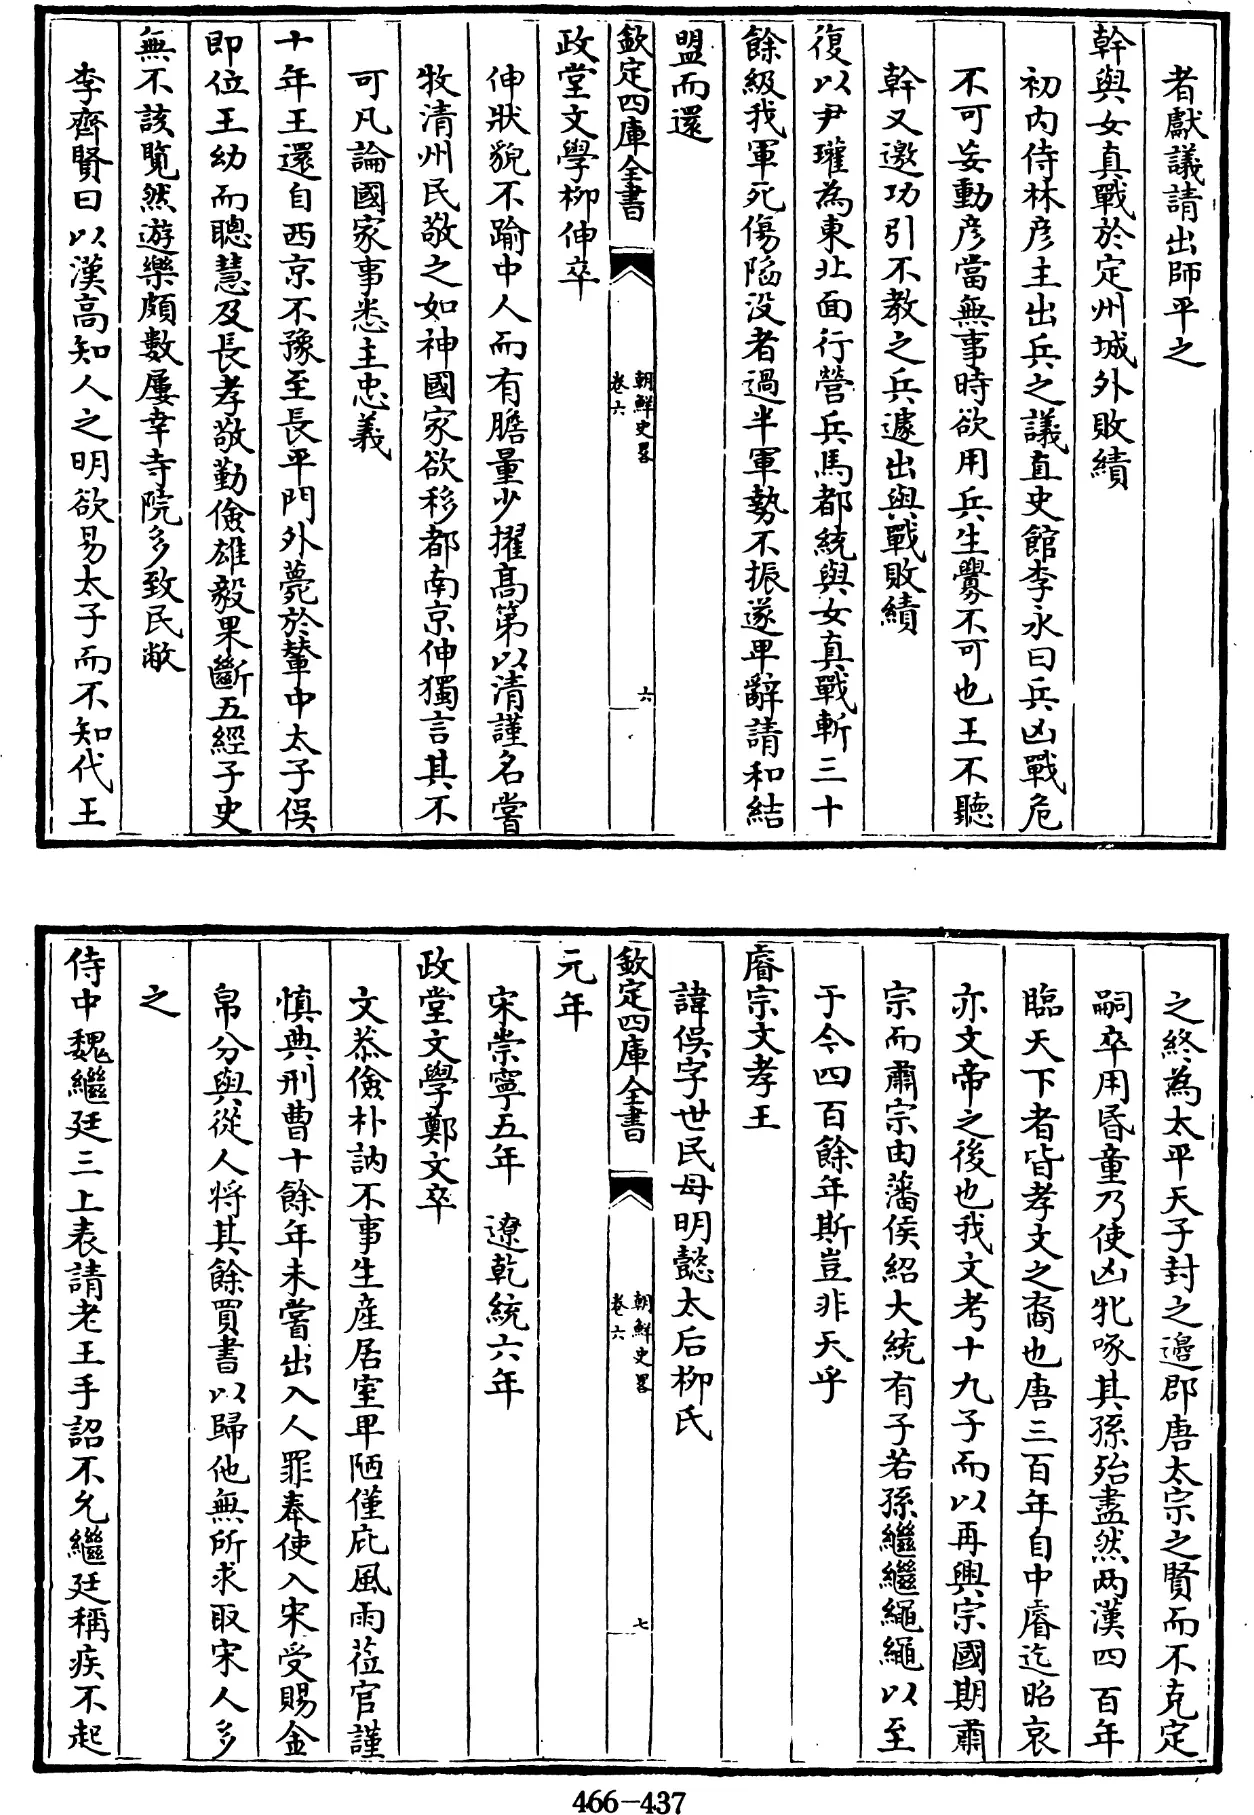 者獻議請出師平之
幹與女真戰於定州城外敗績
初内侍林彦主出兵之議直史館李永曰兵凶戰危
不可妄動彦當無事時欲用兵生釁不可也王不聽
幹又邀功引不教之兵遽出與戰敗績
復以尹瓘為東北面行營兵馬都統與女真戰斬三十
餘級我軍死傷陷没者過半軍勢不振遂卑辭請和結
盟而還
欽定四庫全書
朝鮮史畧
卷六
六
政堂文學柳伸卒
伸狀貌不踰中人而有膽量少擢高第以清謹名嘗
牧清州民敬之如神國家欲移都南京伸獨言其不
可凡論國家事悉主忠義
十年王還自西京不豫至長平門外薨於輦中太子俁
即位王幼而聰慧及長孝敬勤儉雄毅果斷五經子史
無不該覧然遊樂頗數屢幸寺院多致民敝
李齊賢曰以漢高知人之明欲易太子而不知代王
之終為太平天子封之邉郡唐太宗之賢而不克定
嗣卒用昏童乃使凶牝啄其孫殆盡然两漢四百年
臨天下者皆孝文之裔也唐三百年自中睿迄昭哀
亦文帝之後也我文考十九子而以再興宗國期肅
宗而肅宗由藩侯紹大統有子若孫繼繼繩繩以至
于今四百餘年斯豈非天乎
睿宗文孝王
諱俁字世民母明懿太后柳氏
欽定四庫全書
朝鮮史畧
卷六
七
元年
宋崇寧五年　遼乾統六年
政堂文學鄭文卒
文恭儉朴訥不事生産居室卑陋僅庇風雨莅官謹
慎典刑曹十餘年未嘗出入人罪奉使入宋受賜金
帛分與從人將其餘買書以歸他無所求取宋人多
之
侍中魏繼廷三上表請老王手詔不允繼廷稱疾不起
466-437